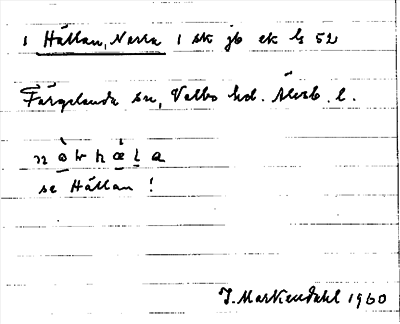 1 Hällan, Norra 1 sk jb ek ls 52
Färgelanda sn, Valbo hd. Älvsb. l.
se Hällan !
J. Markendahl 1960